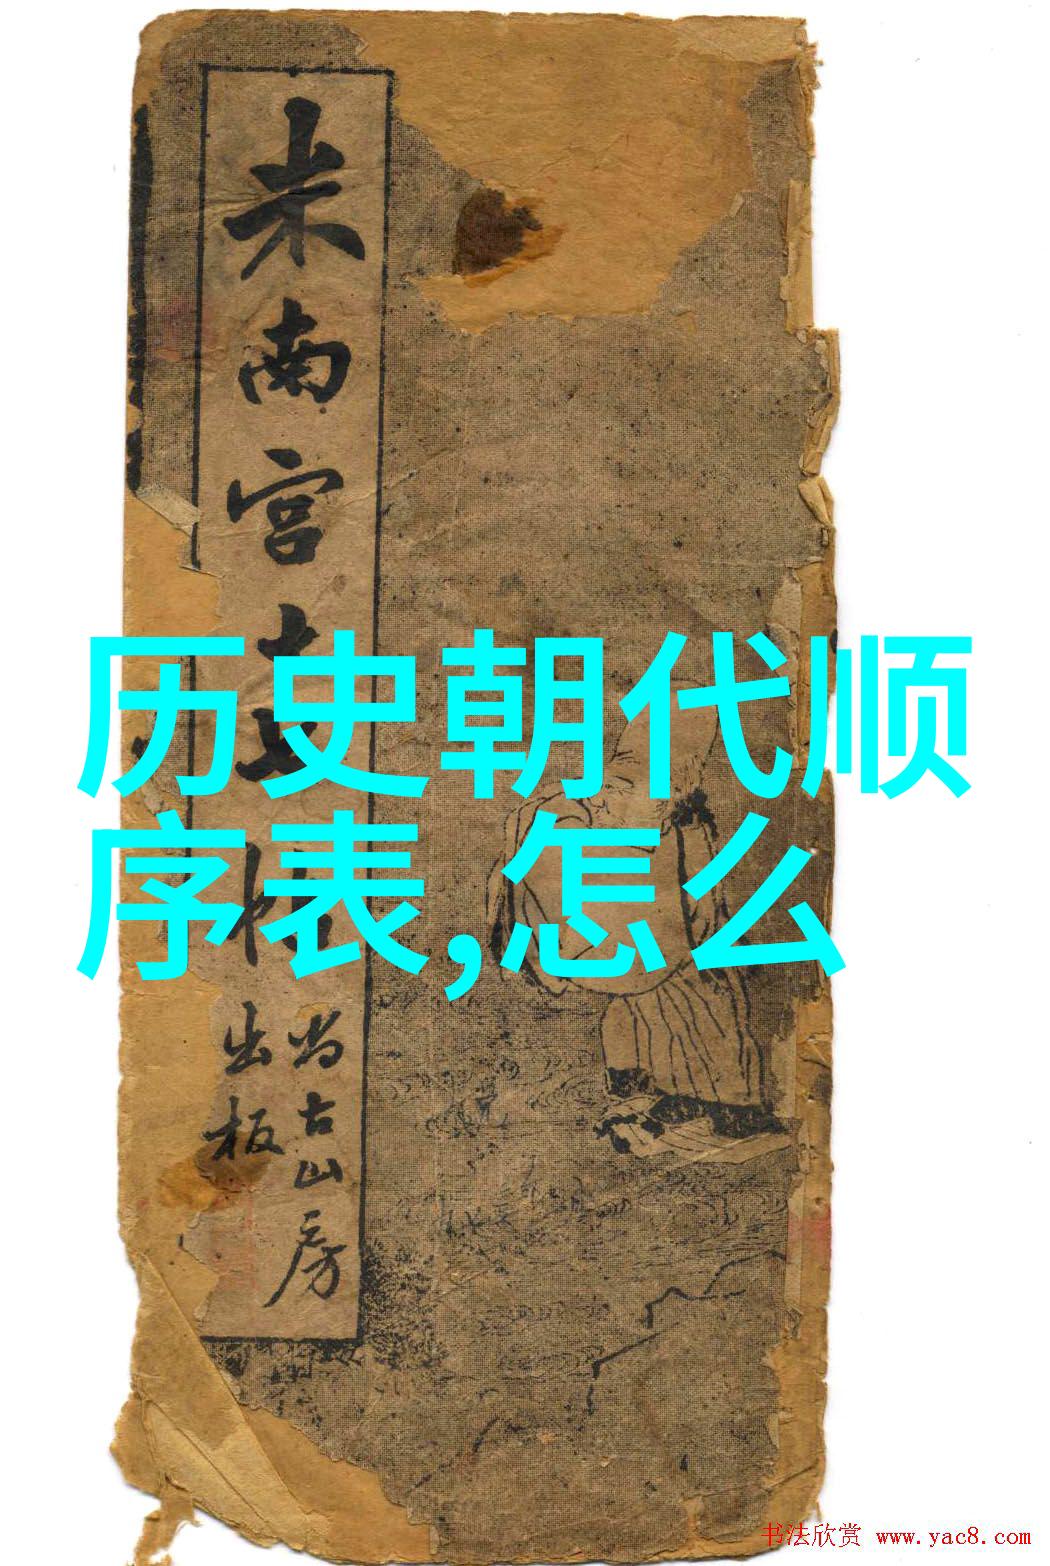 历史朝代顺
序表,怎么
米南宫
尚古山房
出板
书法欣赏 www.yac8.com